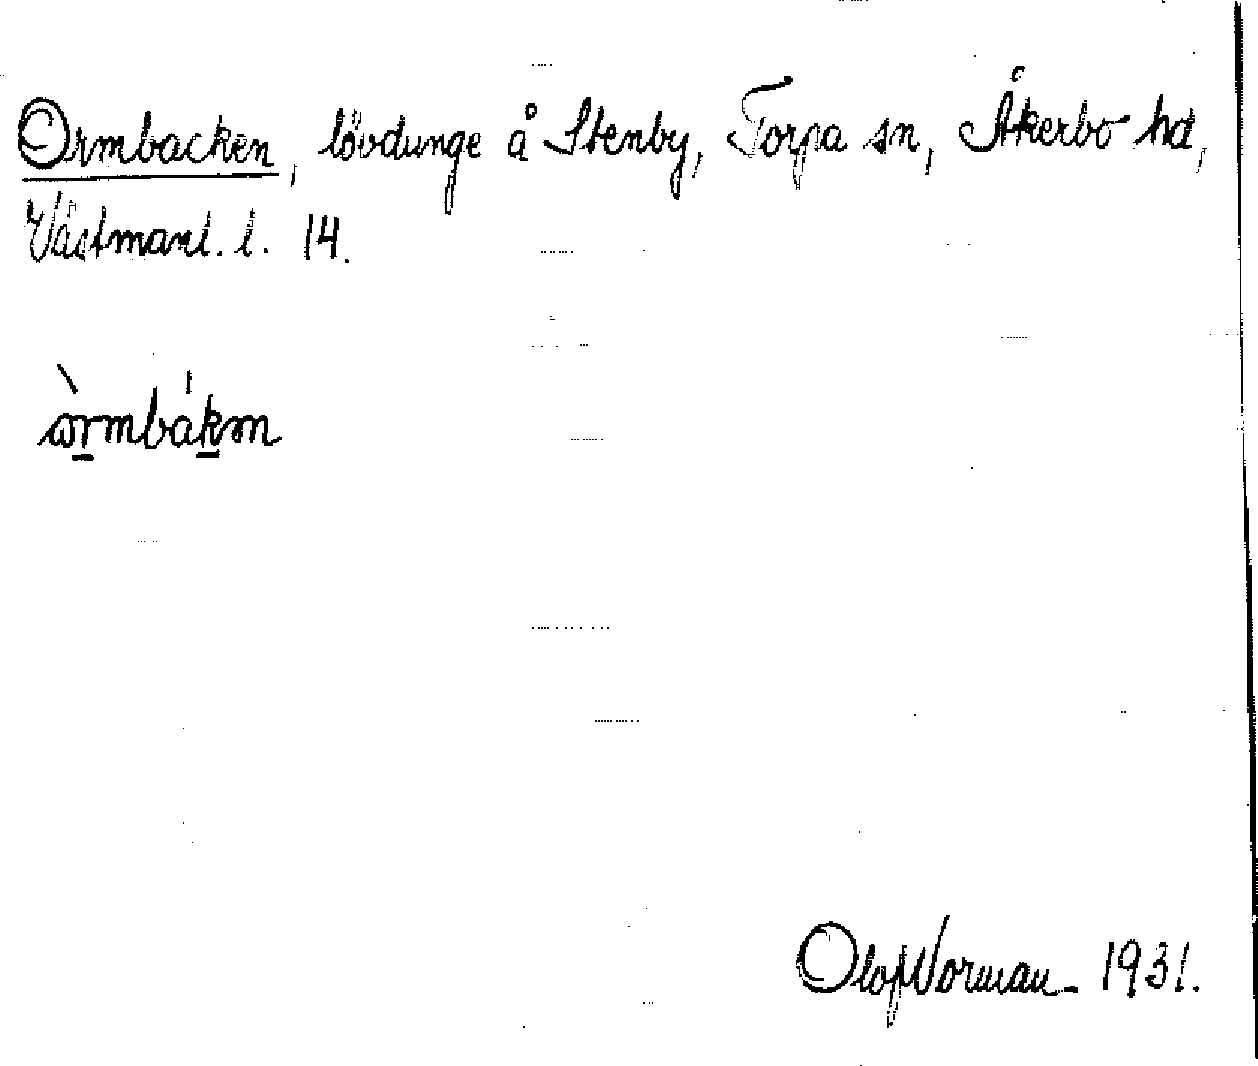 Ormbacken, lövdunge å Stenby, Torpa sn, Åkerbo hd,
Västmanl. l. 14.
òrmbákən
Olof Norman - 1931.